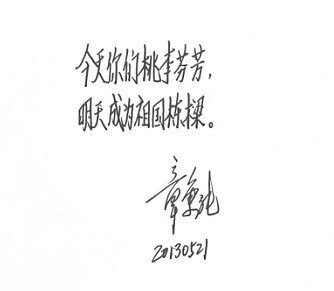 今天你们桃李芬芳，
明天成为祖国栋梁。
20130521